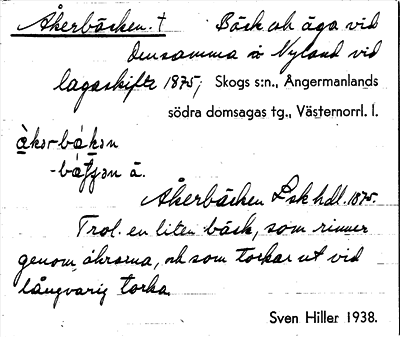 Åkerbäcken. †    Bäck och äga vid
densamma i Nyland vid
lagaskifte 1875, Skogs s:n., Ångermanlands
södra domsagas tg., Västernorrl. l.
å̀kər-bȧkən
-bȧt̬ʃən å.
Åkerbäcken Lsk hdl. 1875.
Trol. en liten bäck, som rinner
genom åkrarna, och som torkar ut vid
långvarig torka.
Sven Hiller 1938.